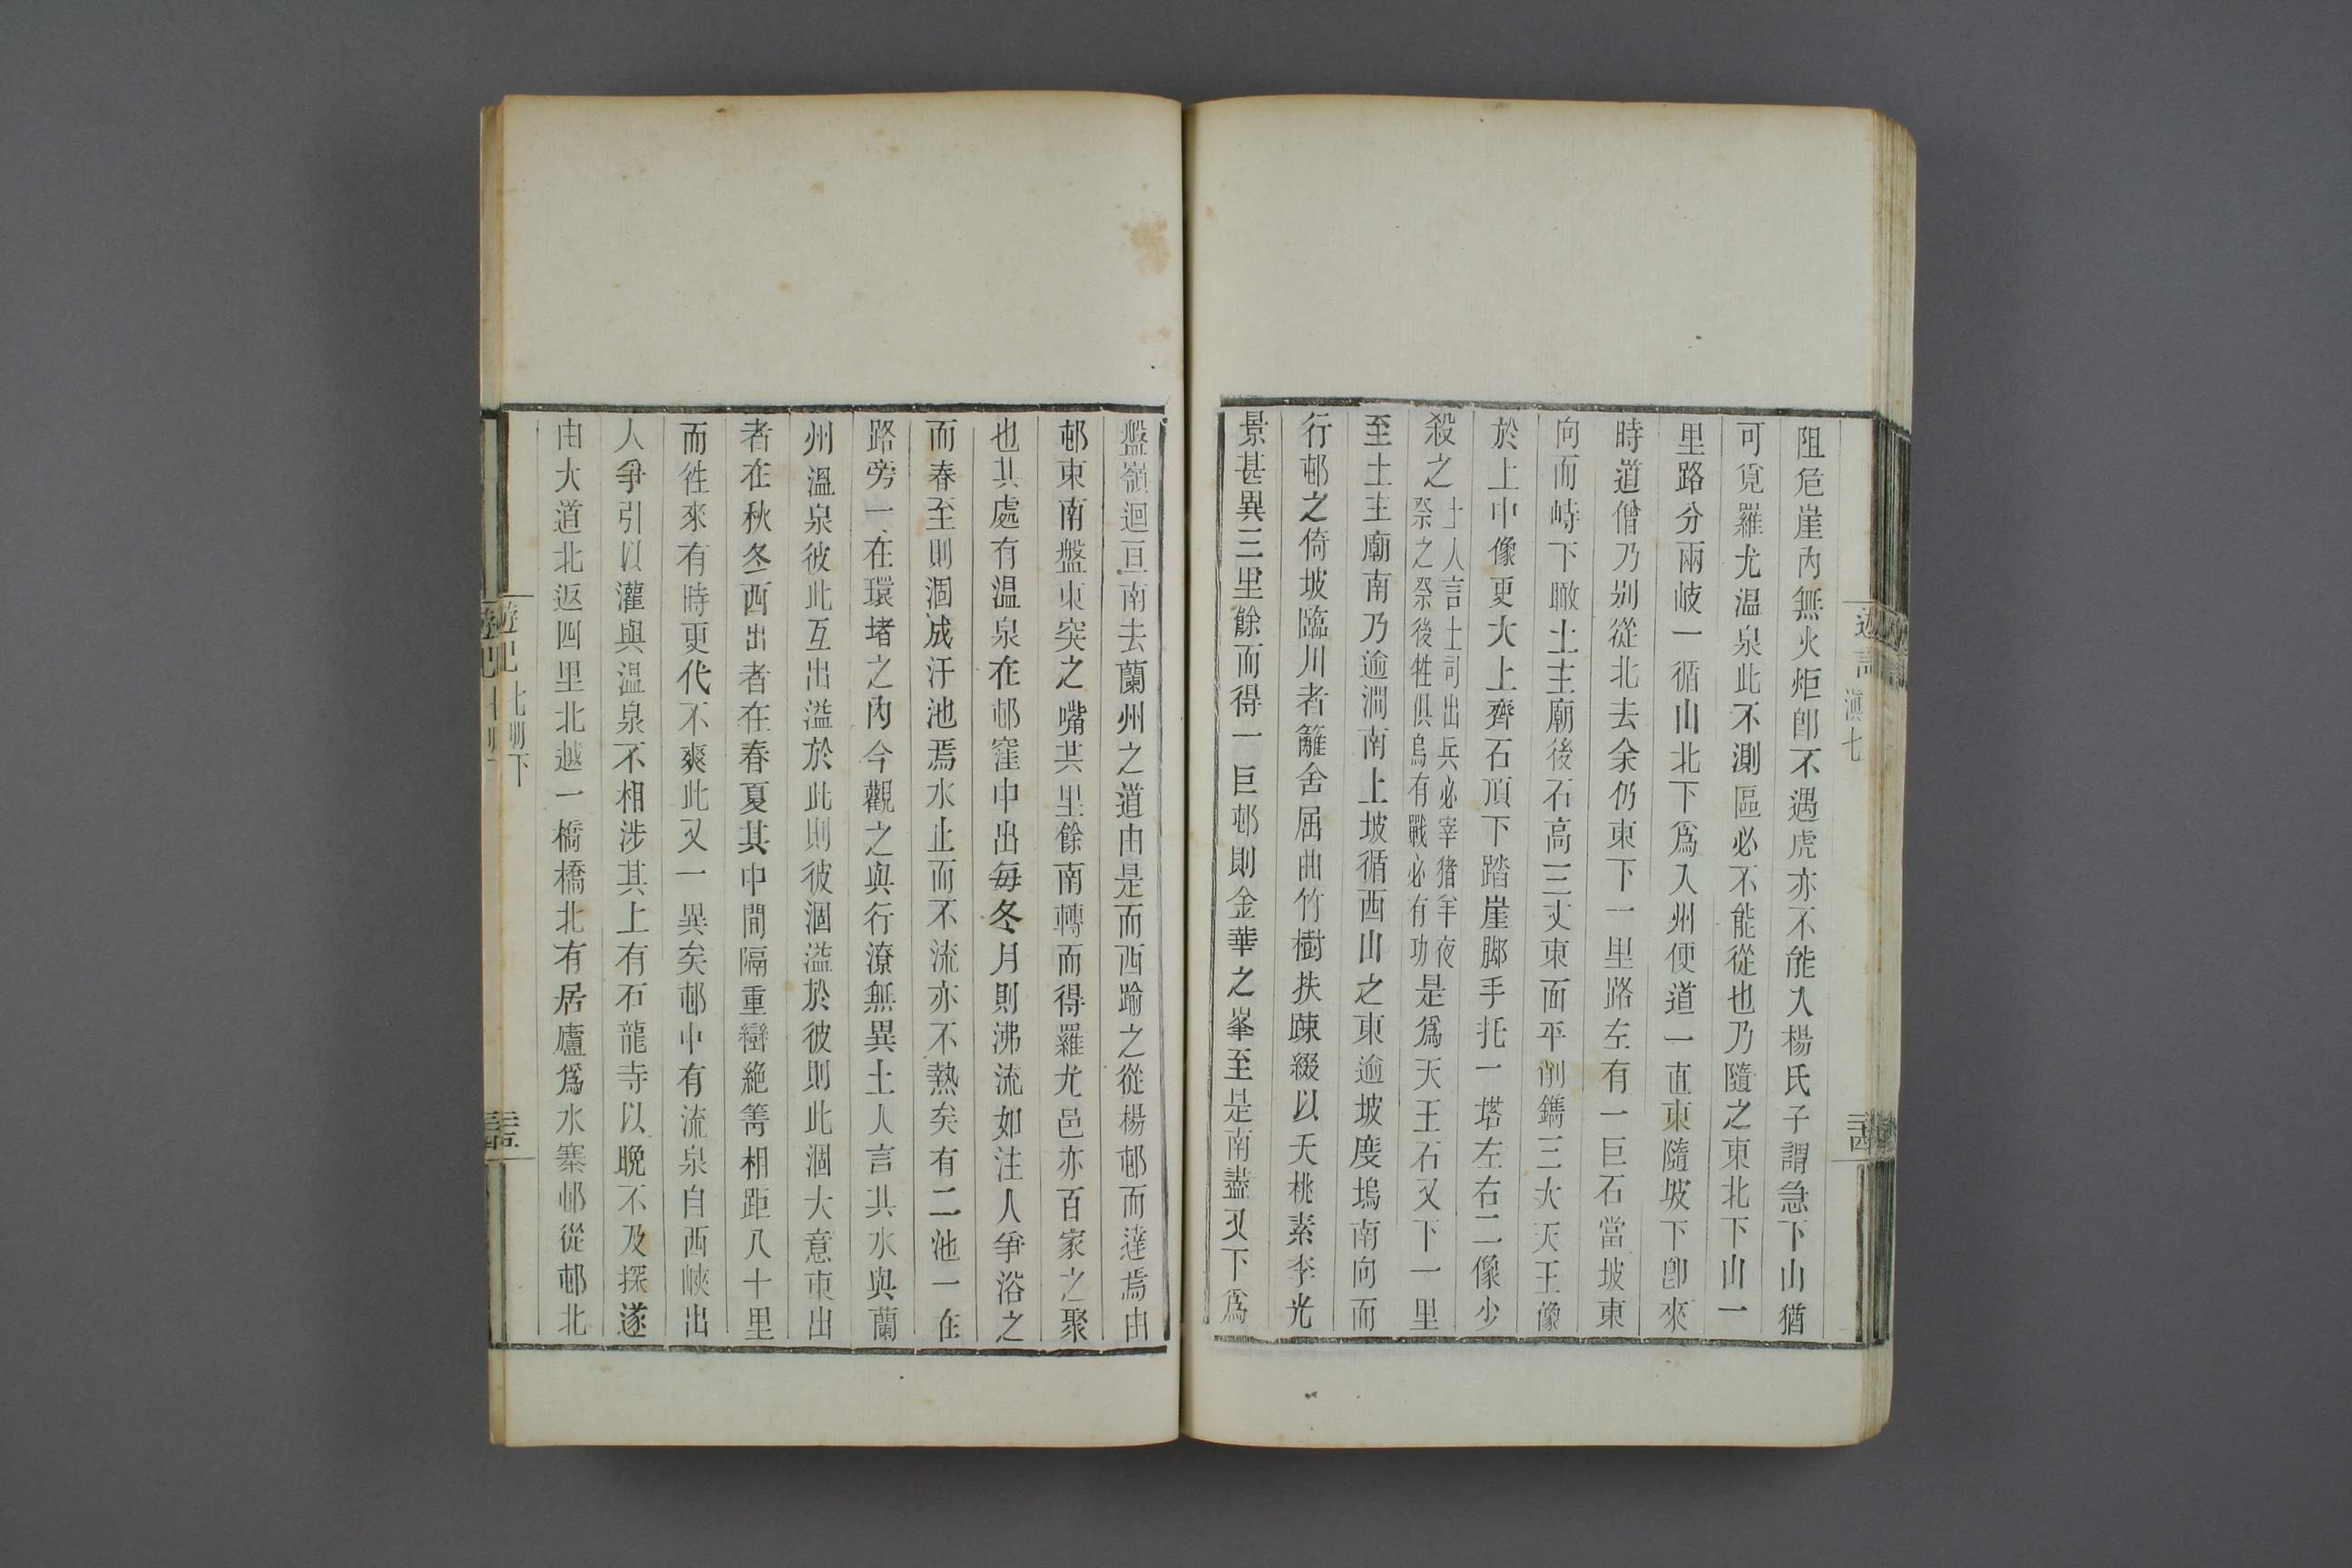 阻危崖內無火炬卽不遇虎亦不能入楊氏子謂急下山猶
可覓羅尤温泉此不測區必不能從也乃隨之東北下山一
里路分兩岐一循山北下爲入州便道一直東隨坡下卽來
時道僧乃别從北去余仍東下一里路左有一巨石當坡東
向而峙下瞰土主廟後石高三丈東面平削鐫三大天王像
於上中像更大上齊石頂下踏崖脚手托一塔左右二像少
殺之土人言土司出兵必宰猪羊夜祭之祭後牲俱烏有戰必有功是爲天王石又下一里
至土主廟南乃逾澗南上坡循西山之東逾坡度塢南向而
行邨之倚坡臨川者籬舍屈曲竹樹扶疎綴以夭桃素李光
景甚異三里餘而得一巨邨則金華之峯至是南盡又下爲
遊記 滇七
盤嶺迴亘南去蘭州之道由是而西踰之從楊邨而達焉由
邨東南盤東突之嘴共里餘南轉而得羅尤邑亦百家之聚
也其處有温泉在邨窪中出每冬月則沸流如注人爭浴之
而春至則涸成汙池焉水止而不流亦不熱矣有二池一在
路旁一在環堵之內今觀之與行潦無異土人言其水與蘭
州溫泉彼此互出溢於此則彼涸溢於彼則此涸大意東出
者在秋冬西出者在春夏其中間隔重巒絶箐相距八十里
而徃來有時更代不爽此又一異矣邨中有流泉自西峽出
人爭引以灌與温泉不相涉其上有石龍寺以晚不及探遂
由大道北返四里北越一橋橋北有居廬爲水寨邨從邨北
遊記